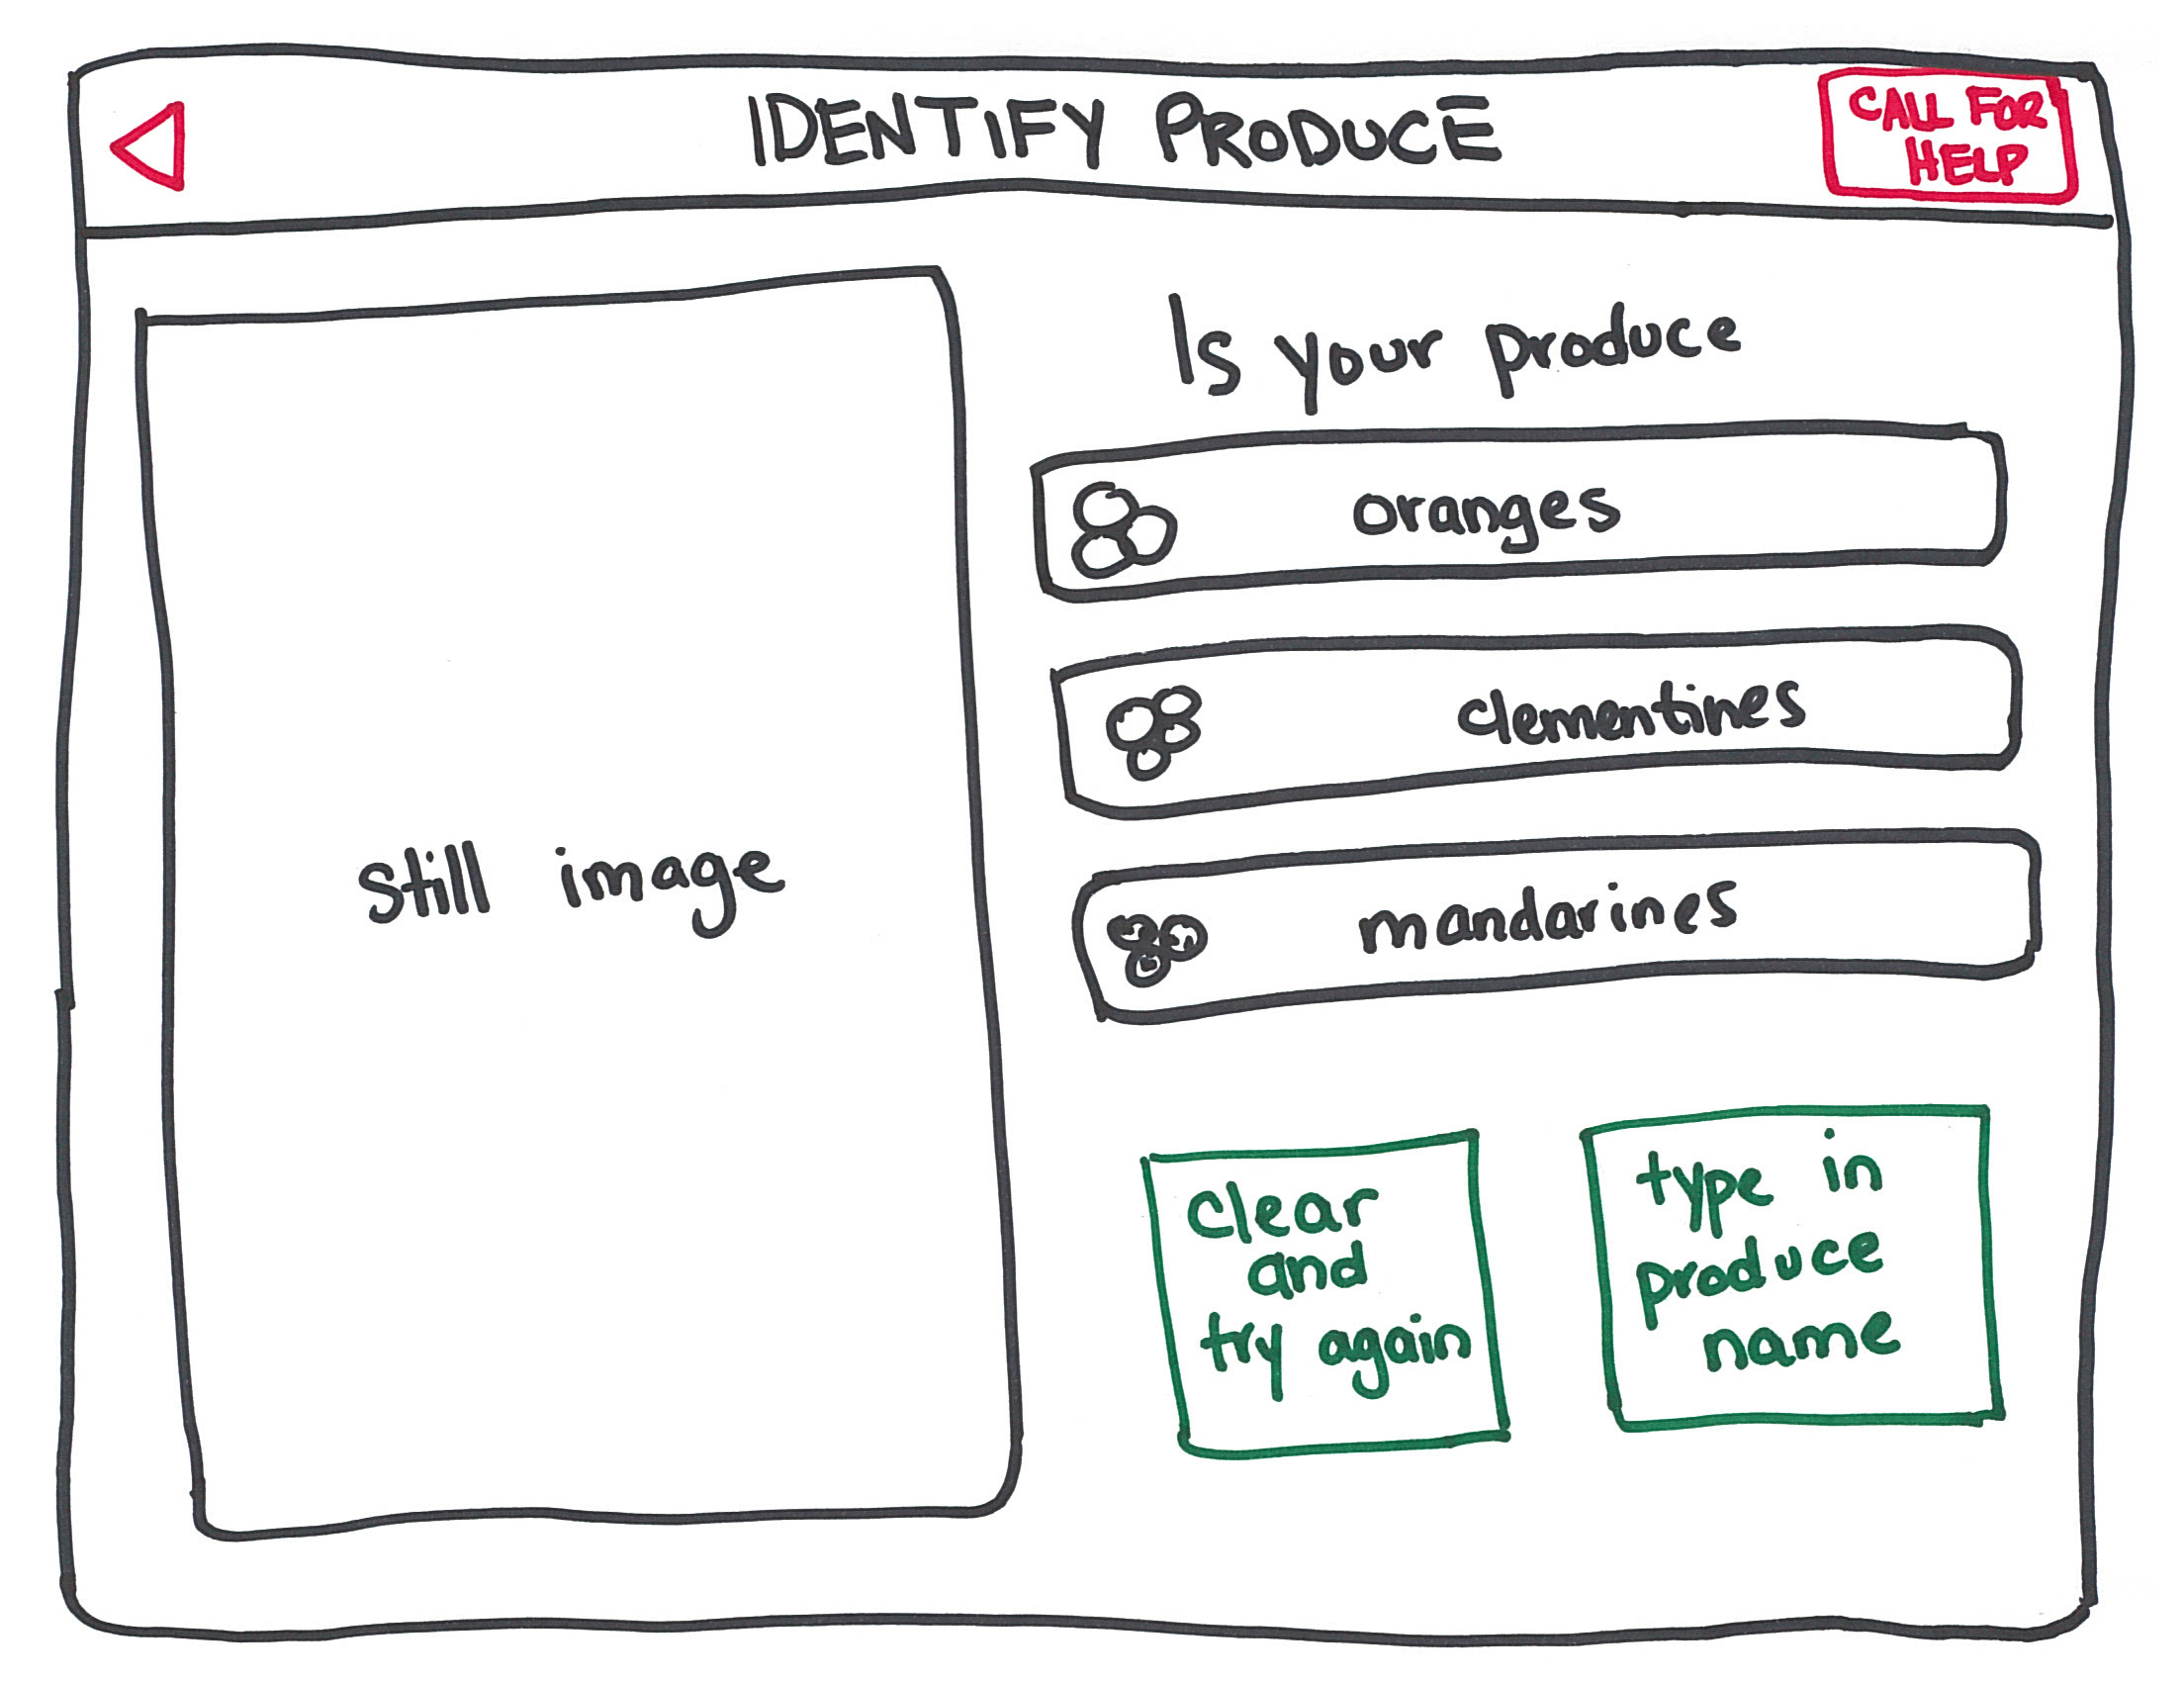 IDENTIFY PRODUCE
CALL FOR
HELP
still image
Is your produce
oranges
clementines
mandarines
clear
and
try again
type in
produce
name